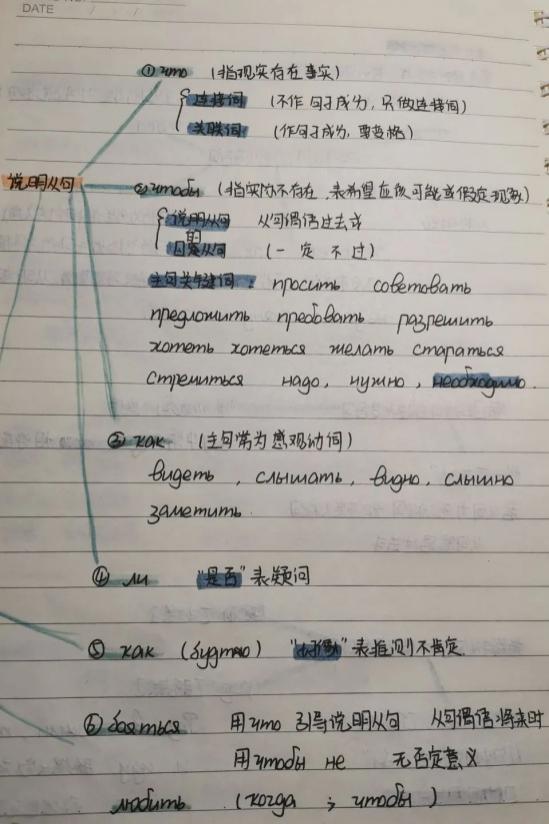 DATE
① что (指现实存在事实)
连接词 (不作句子成分, 只做连接词)
关联词 (作句子成分, 要变格)
说明从句
② чтобы (指实际不存在, 表希望应该可能或假定现象)
说明从句 从句谓语过去式
的
目的从句 (一定不过)
主句关键词: просить советовать
предложить требовать разрешить
хотеть хотеться желать стараться
стремиться надо, нужно, необходимо.
③ как (主句常为感观动词)
видеть, слышать, видно, слышно
заметить.
④ ли "是否" 表疑问
⑤ как (будто) "好像" 表推测不肯定.
⑥ бояться 用что 引导说明从句 从句谓语将来时
用чтобы не 无否定意义
любить (когда ; чтобы)